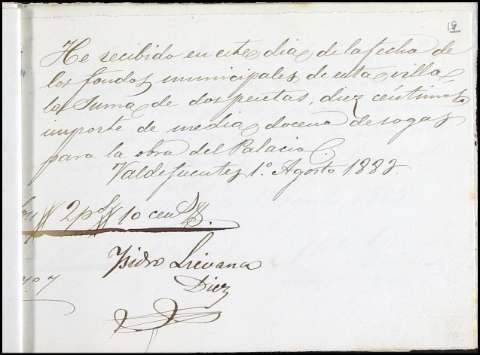 9
He recibido en este dia de la fecha de
los fondos municipales de esta villa
la Suma de dos pesetas, diez céntimos
importe de media docena de sogas
para la obra del Palacio.
Valdefuentes 1º Agosto 1882
2 pts 10 cent
Isidro Liévana
Diez